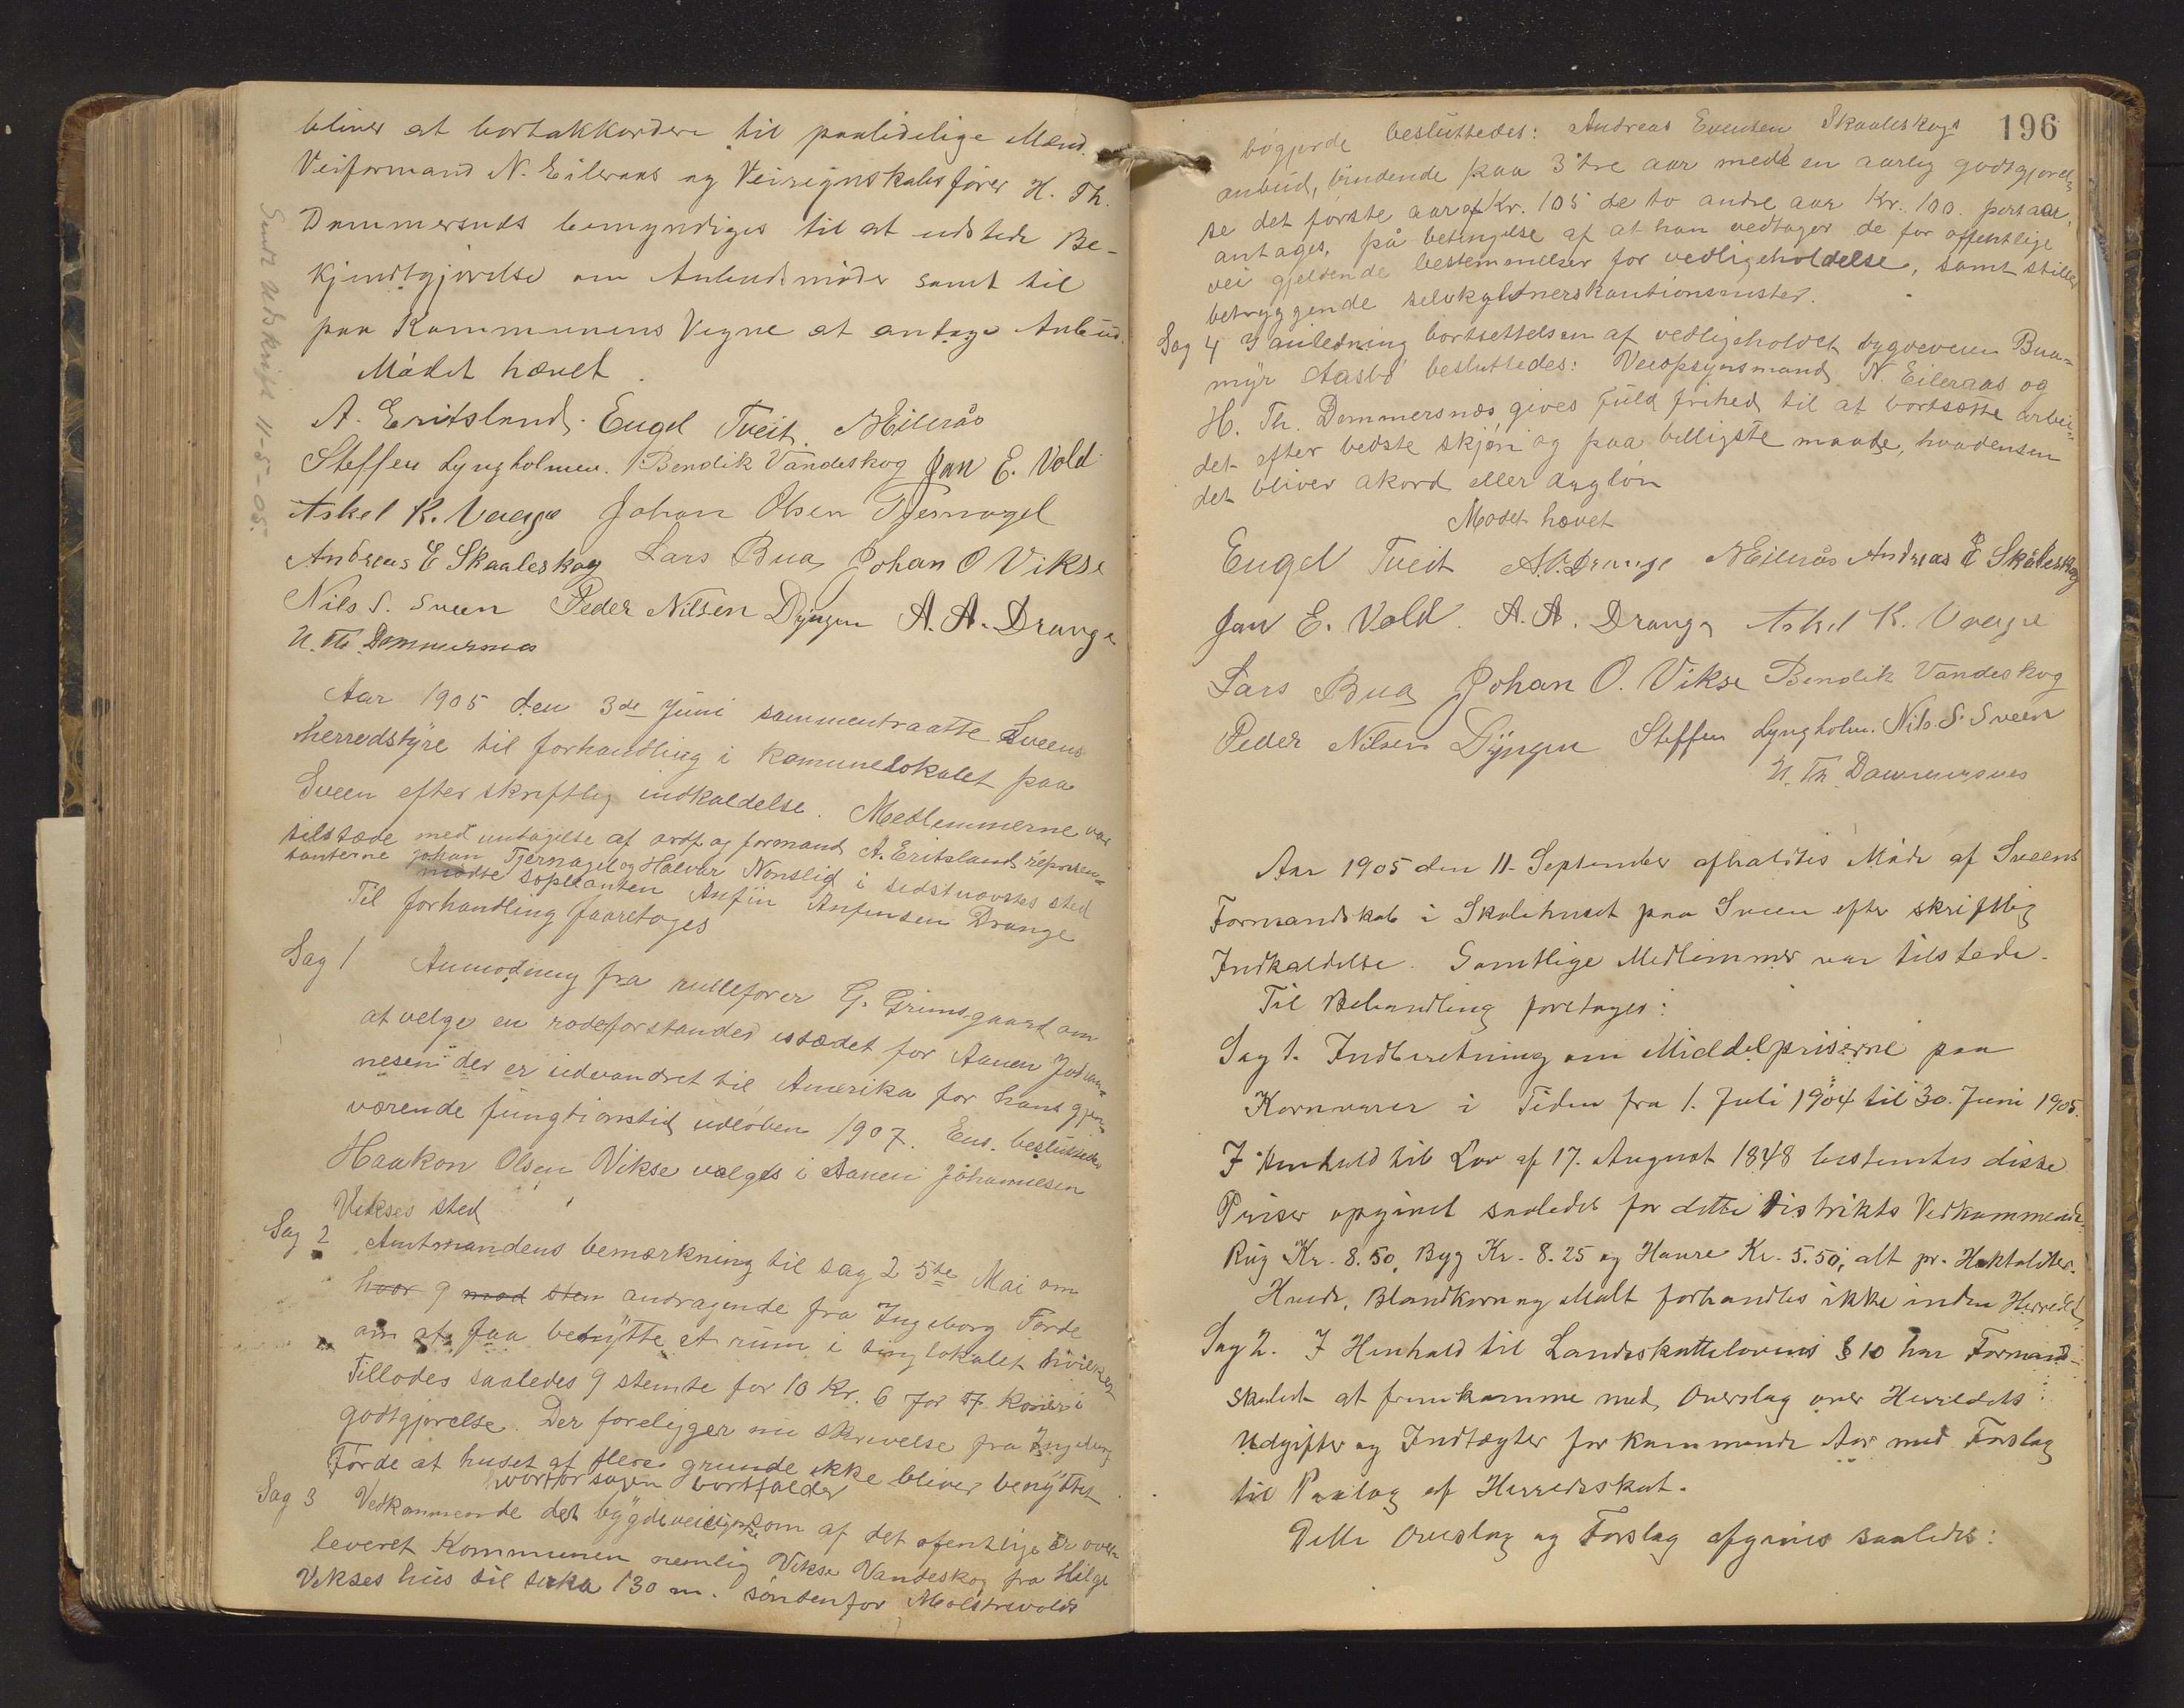 bliver at bortakkordere til paalidelige Mænd.
Veiformand N. Eileraas og Veiregnskabsfører H. Th.
Dommersnæs bemyndiges til at udstede Be-
kjendtgjørelse om Anbudsmøder samt til
paa Kommunens Vegne at antage Anbud.
Mødet hævet.
A. Eritsland. Engel Tveit. NEilerås
Steffen Lyngholmen. Bendik Vandeskog Jan E. Vold
Askel K. Vaage Johan Olsen Tjernagel
Andreas E Skaaleskog Lars Bua Johan O Vikse
Nils S. Sveen Peder Nilsen Dyngen A. A. Drange
H. Th. Dommersnes
Sendt Udskrift 11-5-05.
Aar 1905 den 3de Juni sammentraatte Sveens
herredstyre til forhandling i komunelokalet paa
Sveen efter skriftlig indkaldelse. Medlemmerne var
tilstæde med undtagelse af ordf og formand A. Eritsland, represen=
tanterne Johan Tjernagel og Halvar Nonslid i sidstnævntes sted
mødte supleanten Anfin Anfinsen Drange
Til forhandling faaretages
Sag 1 Anmodning fra rullefører G. Grimsgaard om
at velge en rodeforstander istædet for Aanen Johan=
nesen der er udvandret til Amerika for hans gjen=
værende fungtionstid udløben 1907. Ens. besluttedes
Haakon Olsen Vikse valges i Aanen Johannesen
Vikses sted
Sag 2 Amtmandens bemærkning til sag 2 5te Mai om
hvor 9 mod sten andragende fra Ingeborg Førde
om at faa benytte et rum i tinglokalet hvilket
Tillodes saaledes 9 stemte for 10 Kr. 6 for 7 Kroner i
godtgjørelse. Der foreligger nu skrivelse fra Ingeborg
Førde at huset af flere grunde ikke bliver benyttet
hvorfor sagen bortfalder
Sag 3 Vedkommende det bygdeveistykke som af det ofentlige er over=
leveret Kommunen nemlig Vikse Vandeskog fra Helge
Vikses hus til sirka 130 m. søndenfor Mølstrevolds
196
bøgjerde besluttedes: Andreas Evensen Skaaleskogs
anbud, bindende paa 3 tre aar med en aarlig godtgjørel=
se det første aar af Kr. 105 de to andre aar Kr. 100. per aar,
antages, på betingelse af at han vedtager de for offentlige
vei gjeldende bestemmelser for vedligeholdelse, samt stiller
betryggende selvskyldnerskautionsmster.
Sag 4 I anledning bortsettelsen af vedligeholdet bygdeveien Bua=
myr Aasbø besluttedes: Veiopsynsmand N. Eileraas og
H. Th. Dommersnæs gives fuld frihed til at bortsætte arbei=
det efter bedste skjøn og paa billigste maade, hvadensen
det bliver akord eller dagløn
Mødet hævet
Engel Tveit A. V. Drange NEilerås Andreas E Skåleskog
Jan E. Vold. A. A. Drange Askel K. Vaage
Lars Bua Johan O. Vikse Bendik Vandeskog
Peder Nilsen Dyngen Steffen Lyngholm. Nils. S. Sveen
H. Th Dommersnes
Aar 1905 den 11. September afholdtes Møde af Sveens
Formandskab i Skolehuset paa Sveen efter skriftlig
Indkaldelse. Samtlige Medlemmer var tilstede.
Til Behandling foretages:
Sag 1. Indberetning om Middelpriserne paa
Kornvarer i Tiden fra 1. Juli 1904 til 30. Juni 1905.
I Henhold til Lov af 17. August 1848 bestemtes disse
Priser opgivet saaledes for dette Distrikts Vedkommende:
Rug Kr. 8.50, Byg Kr. 8.25 og Havre Kr. 5.50, alt pr. Hektoliter.
Hvede, Blandkorn og Malt forhandles ikke inden Herredet.
Sag 2. I Henhold til Landsskattelovens § 10 har Formand-
skabet at fremkomme med Overslag over Herredets
Udgifter og Indtægter for kommende Aar med Forslag
til Paalæg af Herredsskat.
Dette Overslag og Forslag afgives saaledes: